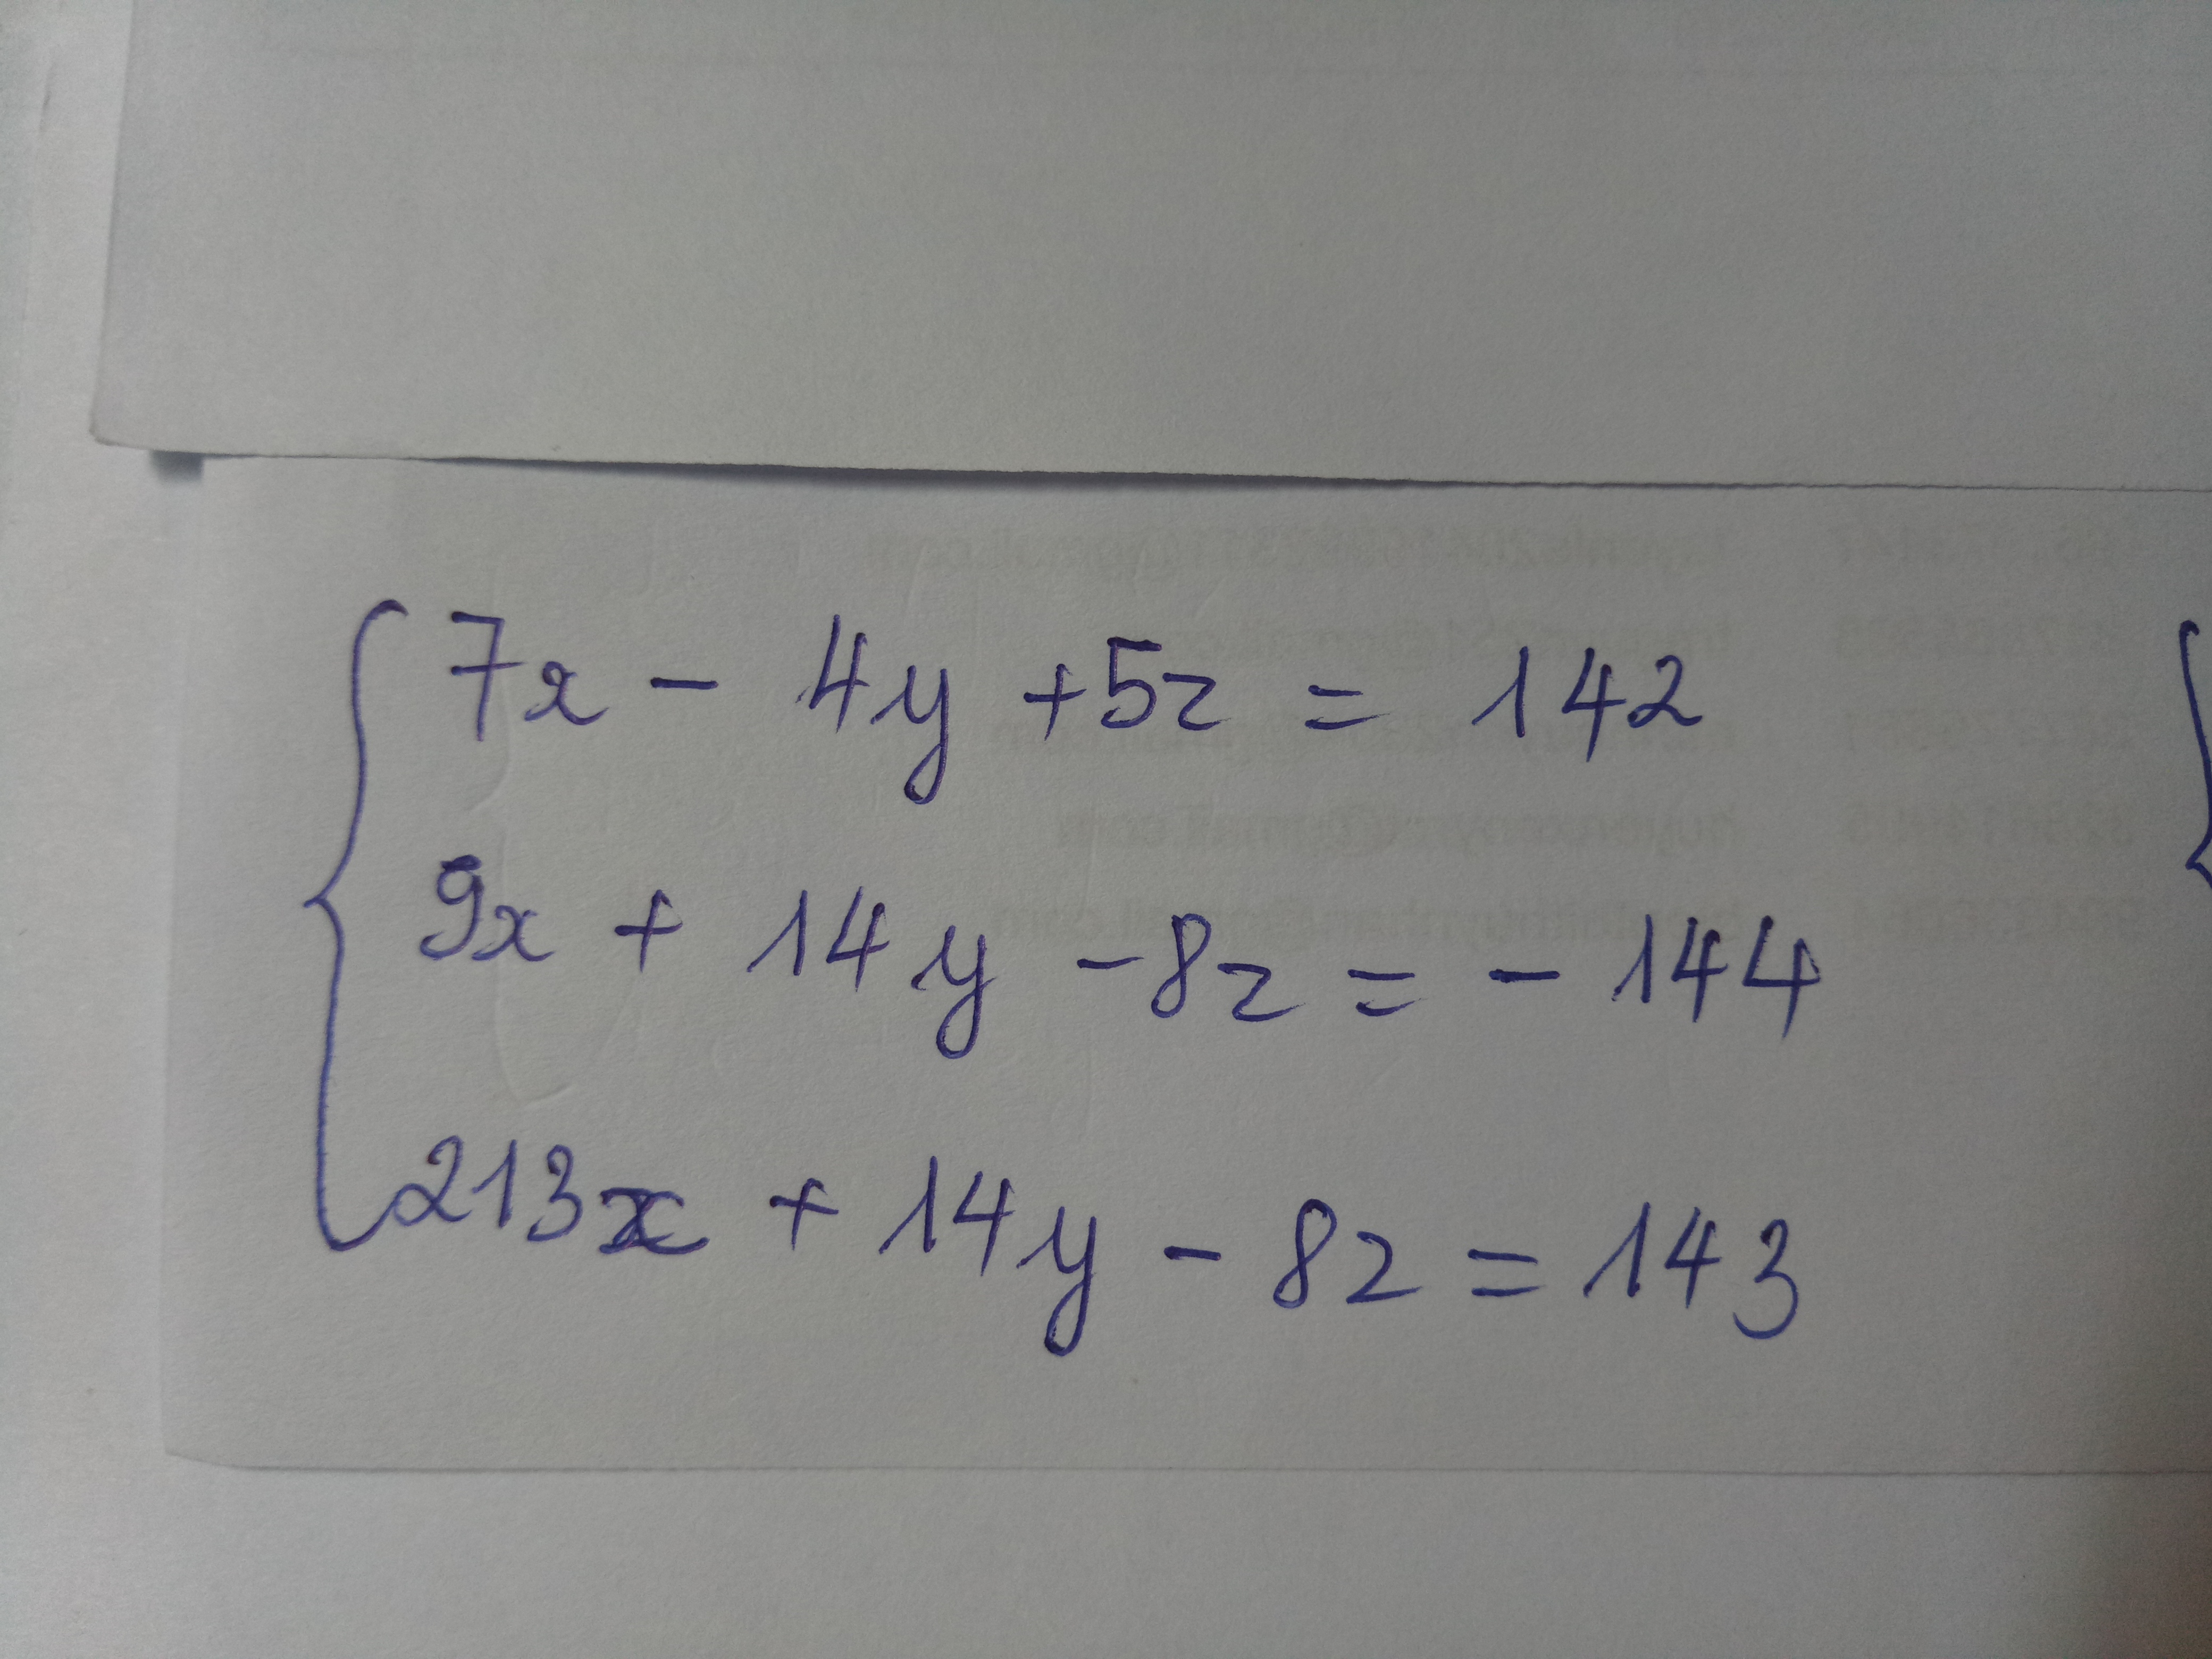 7x - 4y + 5z = 142
9x + 14y - 8z = - 144
213x + 14y - 8z = 143